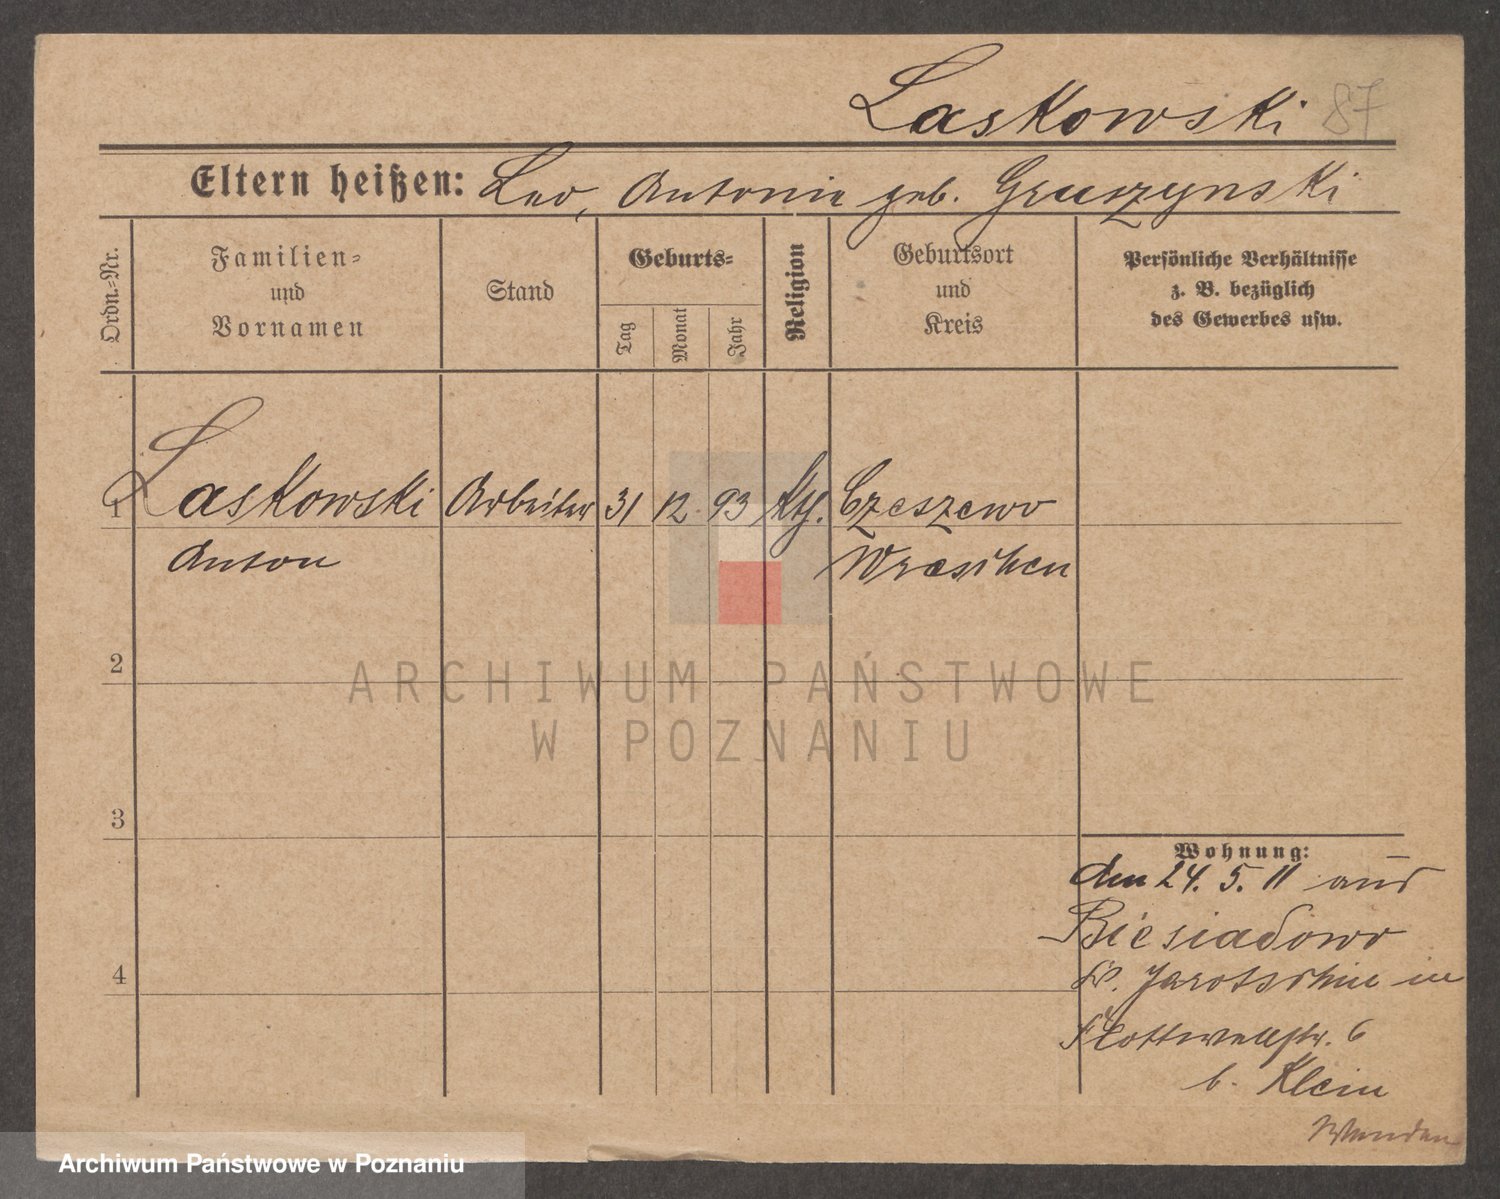 Laskowski 87
Eltern heißen: Leo, Antonie geb. Gruszynski
Ordn.=Nr.
Familien=
und
Vornamen
Stand
Geburts=
Tag
Monat
Jahr
Religion
Geburtsort
und
Kreis
Persönliche Verhältnisse
z. B. bezüglich
des Gewerbes usw.
1 Laskowski Arbeiter 31 12 93 kth. Czeszewo
Anton Wreschen
2
3
4
Wohnung:
den 24. 5. 11 aus
Biesiadowo
Kr. Jarotschin in
Flottwellstr. 6
b. Klein
ARCHIWUM PAŃSTWOWE
W POZNANIU
Archiwum Państwowe w Poznaniu